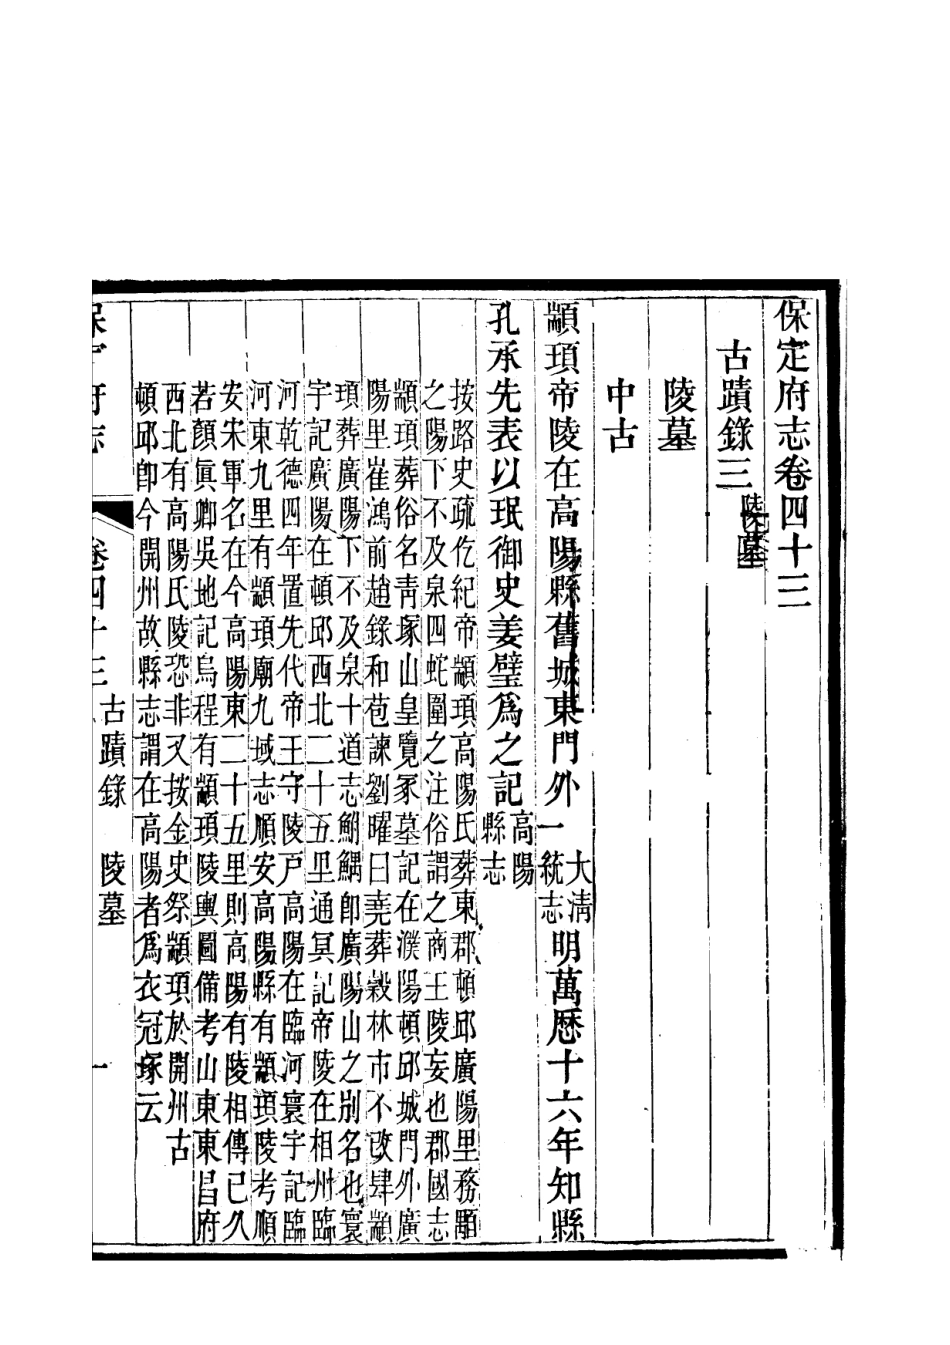 保定府志卷四十三
古蹟錄三陵墓
陵墓
中古
顓頊帝陵在高陽縣舊城東門外大淸一統志明萬曆十六年知縣
孔承先表以珉御史姜璧爲之記高陽縣志
按路史疏仡紀帝顓頊高陽氏葬東郡頓邱廣陽里務顒
之陽下不及泉四蛇圍之注俗謂之商王陵妄也郡國志
顓頊葬俗名靑塚山皇覽冢墓記在濮陽頓邱城門外廣
陽里崔鴻前趙錄和苞諫劉曜曰堯葬穀林市不改肆顓
頊葬廣陽下不及泉十道志鮒鰅卽廣陽山之別名也寰
宇記廣陽在頓邱西北二十五里通冥記帝陵在相州臨
河乾德四年置先代帝王守陵戸高陽在臨河寰宇記臨
河東九里有顓頊廟九域志順安高陽縣有顓頊陵考順
安宋軍名在今高陽東二十五里則高陽有陵相傳已久
若顏眞卿吳地記烏程有顓頊陵輿圖備考山東東昌府
西北有高陽氏陵恐非又按金史祭顓頊於開州古
頓邱卽今開州故縣志謂在高陽者爲衣冠塚云
保定府志
卷四十三
古蹟錄
陵墓
一